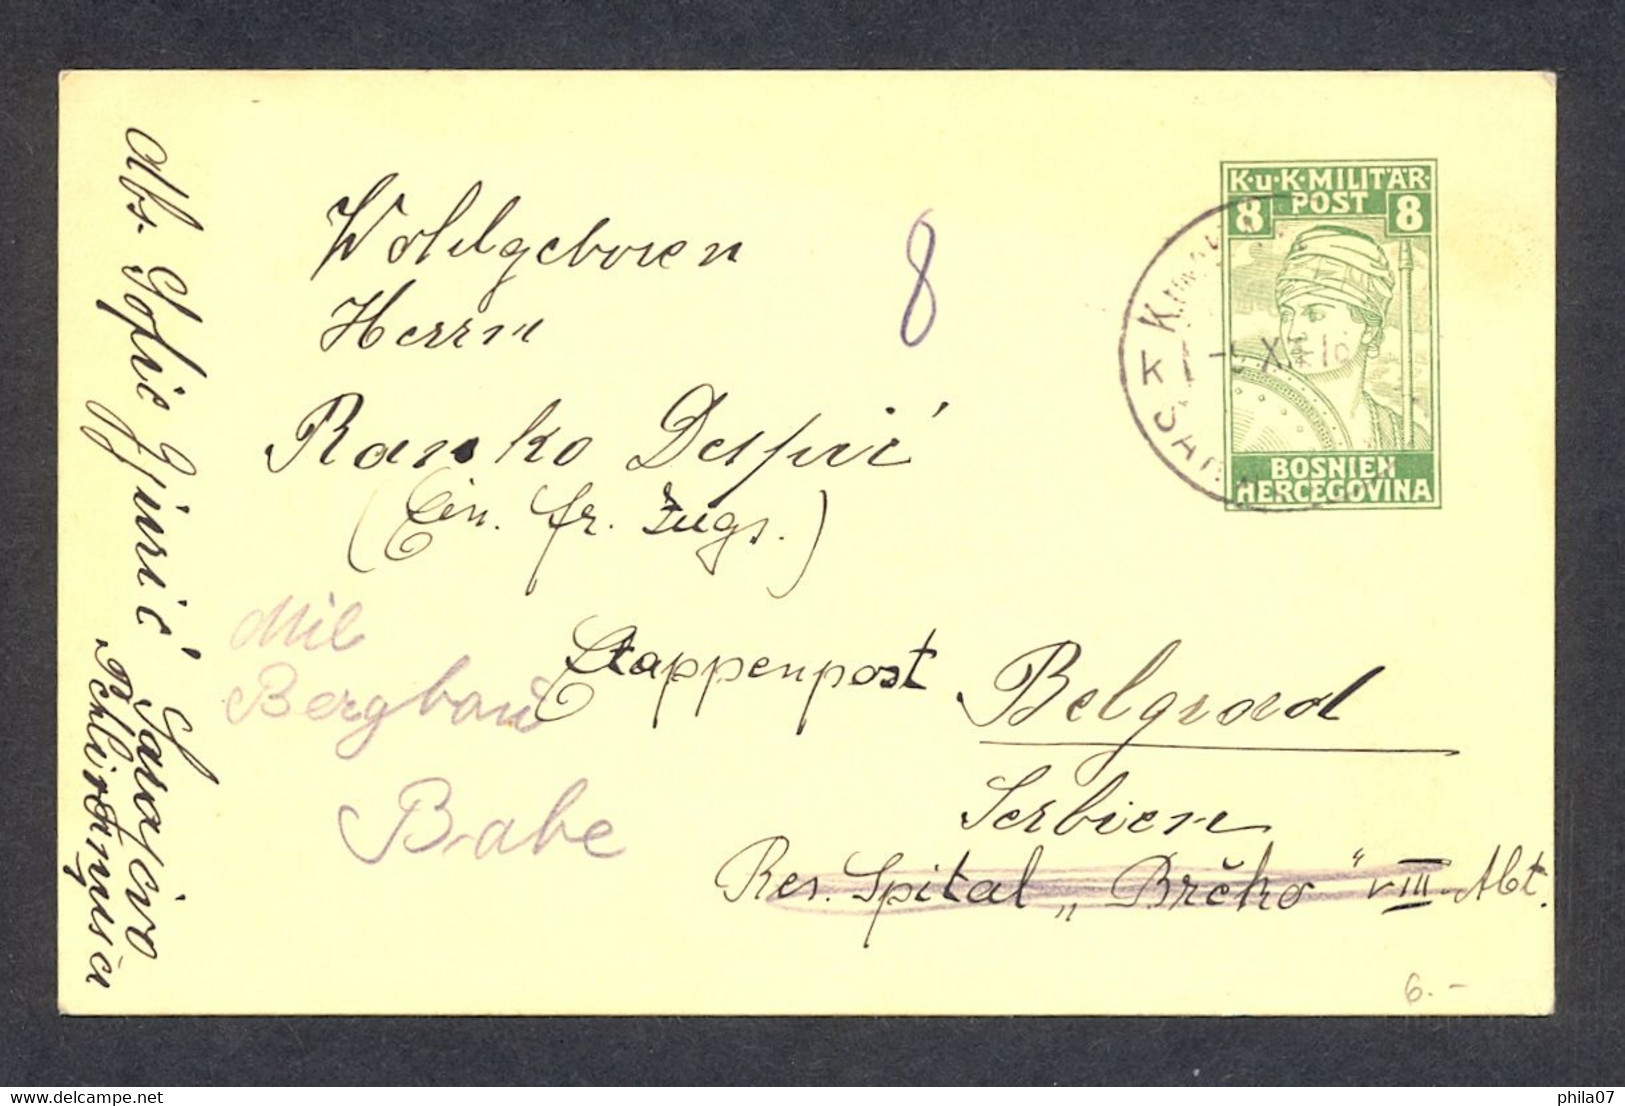 K.u.K. MILITÄR-
8 POST 8
Wohlgeboren
Herrn
Ranko Despić
(Ein. fr. Zugs.)
8
-5 XII 1
K
SARA
BOSNIEN
HERCEGOVINA
Etappenpost Belgrad
Serbien
Res. Spital „Brčko“ VIII. Abt.
Mil
Bergbau
Babe
Abs. Sofie Gjurić Sarajevo
6.-
delcampe.net
phila07